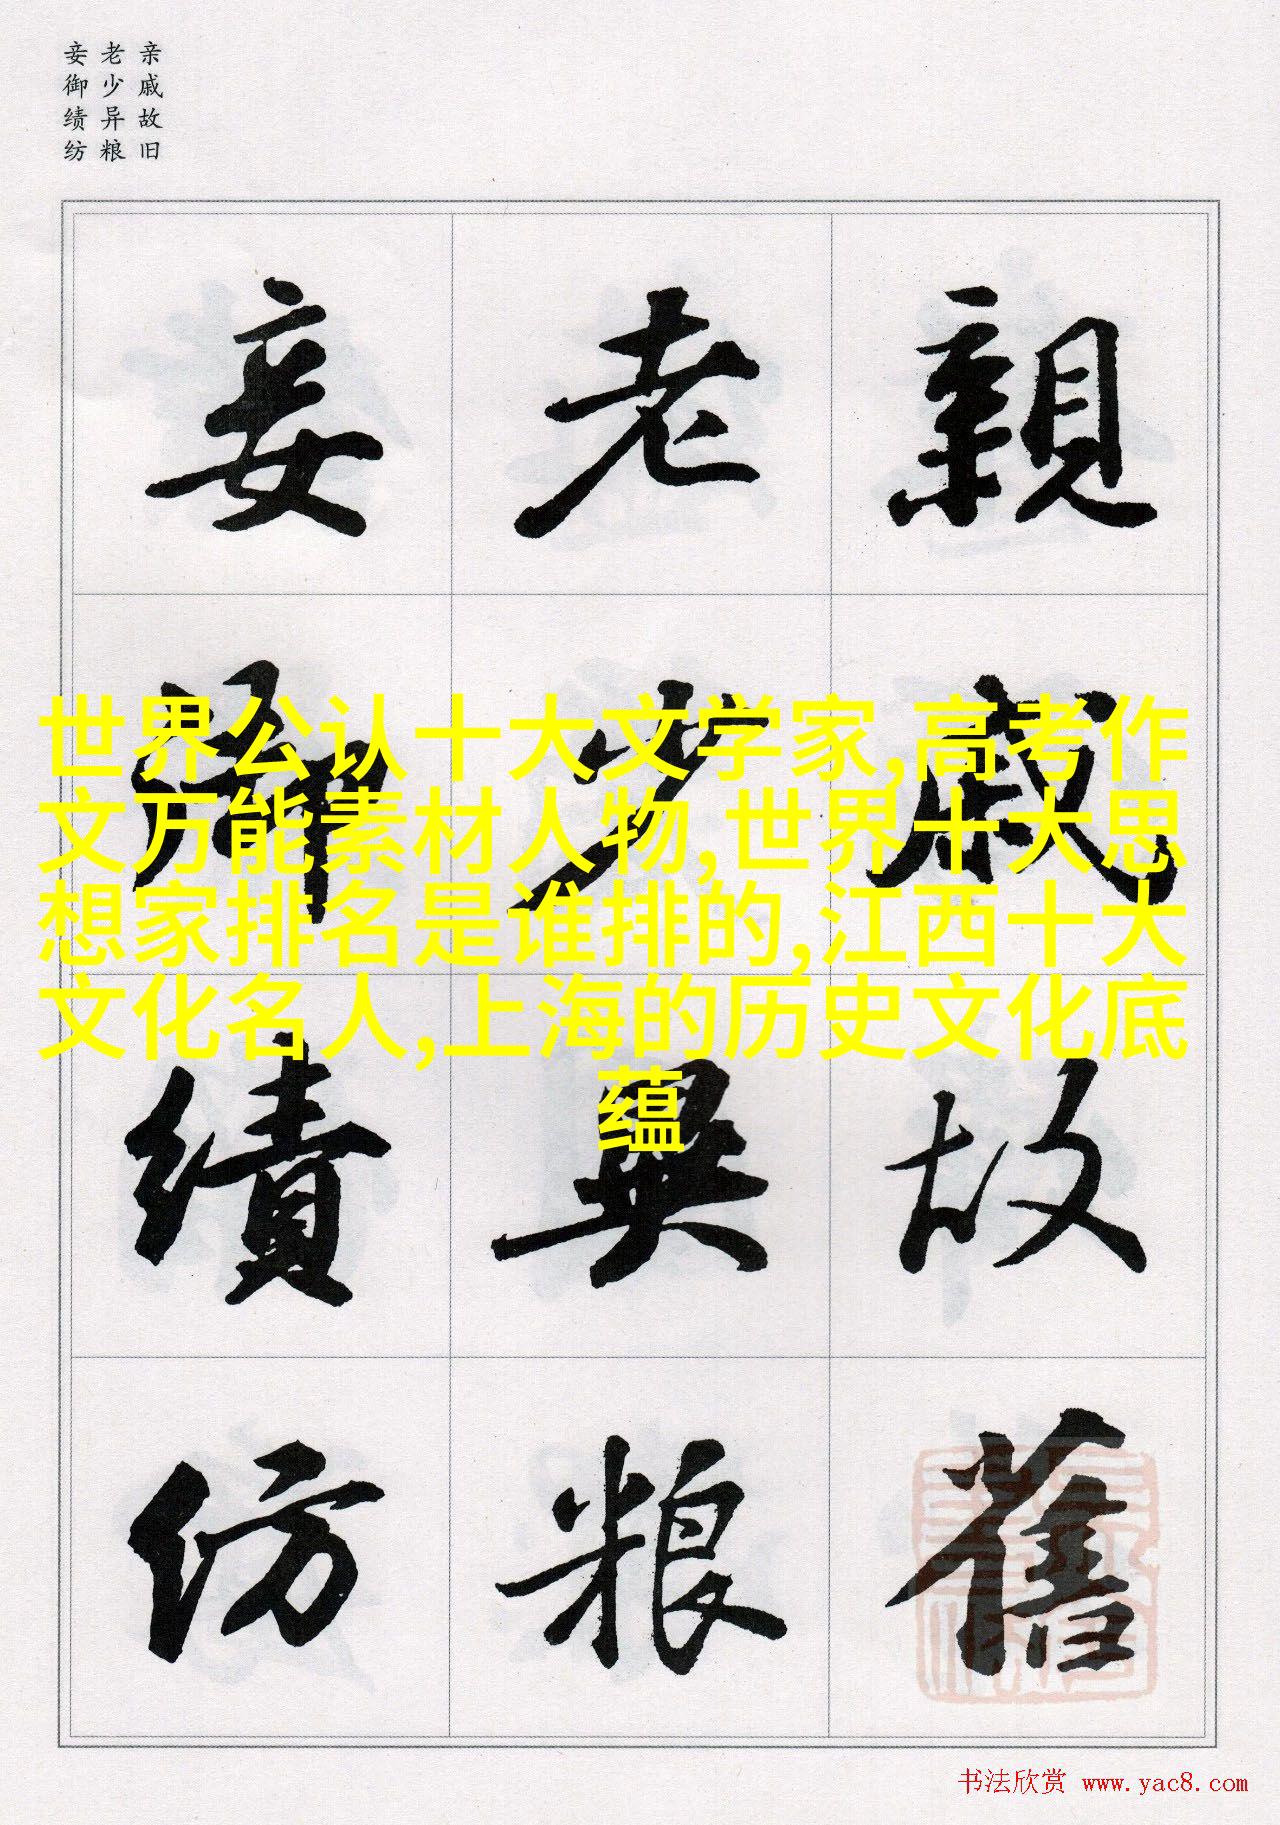 亲戚故旧
老少异粮
妾御绩纺
親戚故舊
老少異粮
妾御績紡
世界公认十大文学家,高考作
文万能素材人物,世界十大思
想家排名是谁排的,江西十大
文化名人,上海的历史文化底
蕴
书法欣赏 www.yac8.com